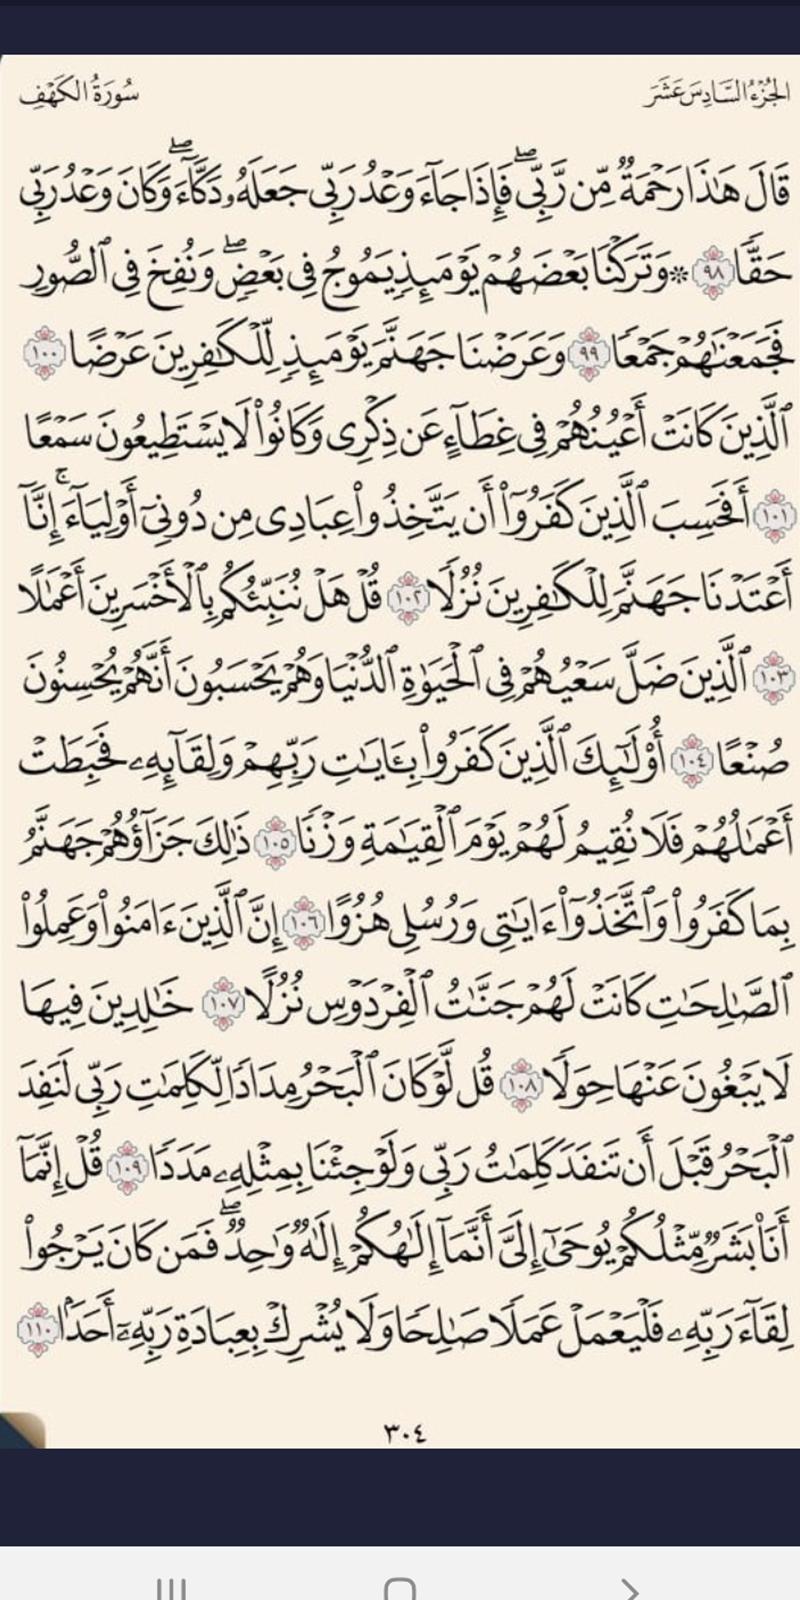 الجُزْءُ السَّادِسَ عَشَرَ
سُورَةُ الكَهْفِ
قَالَ هَٰذَا رَحْمَةٌ مِّن رَّبِّيۖ فَإِذَا جَآءَ وَعْدُ رَبِّي جَعَلَهُۥ دَكَّآءَۖ وَكَانَ وَعْدُ رَبِّي
حَقًّا ٩٨ ۞ وَتَرَكْنَا بَعْضَهُمْ يَوْمَئِذٍ يَمُوجُ فِي بَعْضٖۖ وَنُفِخَ فِي ٱلصُّورِ
فَجَمَعْنَٰهُمْ جَمْعًا ٩٩ وَعَرَضْنَا جَهَنَّمَ يَوْمَئِذٍ لِّلْكَٰفِرِينَ عَرْضًا ١٠٠
ٱلَّذِينَ كَانَتْ أَعْيُنُهُمْ فِي غِطَآءٍ عَن ذِكْرِي وَكَانُوا۟ لَا يَسْتَطِيعُونَ سَمْعًا
١٠١ أَفَحَسِبَ ٱلَّذِينَ كَفَرُوٓا۟ أَن يَتَّخِذُوا۟ عِبَادِي مِن دُونِيٓ أَوْلِيَآءَۚ إِنَّآ
أَعْتَدْنَا جَهَنَّمَ لِلْكَٰفِرِينَ نُزُلًا ١٠٢ قُلْ هَلْ نُنَبِّئُكُم بِٱلْأَخْسَرِينَ أَعْمَٰلًا
١٠٣ ٱلَّذِينَ ضَلَّ سَعْيُهُمْ فِي ٱلْحَيَوٰةِ ٱلدُّنْيَا وَهُمْ يَحْسَبُونَ أَنَّهُمْ يُحْسِنُونَ
صُنْعًا ١٠٤ أُو۟لَٰٓئِكَ ٱلَّذِينَ كَفَرُوا۟ بِـَٔايَٰتِ رَبِّهِمْ وَلِقَآئِهِۦ فَحَبِطَتْ
أَعْمَٰلُهُمْ فَلَا نُقِيمُ لَهُمْ يَوْمَ ٱلْقِيَٰمَةِ وَزْنًا ١٠٥ ذَٰلِكَ جَزَآؤُهُمْ جَهَنَّمُ
بِمَا كَفَرُوا۟ وَٱتَّخَذُوٓا۟ ءَايَٰتِي وَرُسُلِي هُزُوًا ١٠٦ إِنَّ ٱلَّذِينَ ءَامَنُوا۟ وَعَمِلُوا۟
ٱلصَّٰلِحَٰتِ كَانَتْ لَهُمْ جَنَّٰتُ ٱلْفِرْدَوْسِ نُزُلًا ١٠٧ خَٰلِدِينَ فِيهَا
لَا يَبْغُونَ عَنْهَا حِوَلًا ١٠٨ قُل لَّوْ كَانَ ٱلْبَحْرُ مِدَادًا لِّكَلِمَٰتِ رَبِّي لَنَفِدَ
ٱلْبَحْرُ قَبْلَ أَن تَنفَدَ كَلِمَٰتُ رَبِّي وَلَوْ جِئْنَا بِمِثْلِهِۦ مَدَدًا ١٠٩ قُلْ إِنَّمَآ
أَنَا۠ بَشَرٌ مِّثْلُكُمْ يُوحَىٰٓ إِلَيَّ أَنَّمَآ إِلَٰهُكُمْ إِلَٰهٌ وَٰحِدٌۖ فَمَن كَانَ يَرْجُوا۟
لِقَآءَ رَبِّهِۦ فَلْيَعْمَلْ عَمَلًا صَٰلِحًا وَلَا يُشْرِكْ بِعِبَادَةِ رَبِّهِۦٓ أَحَدَۢا ١١٠
٣٠٤